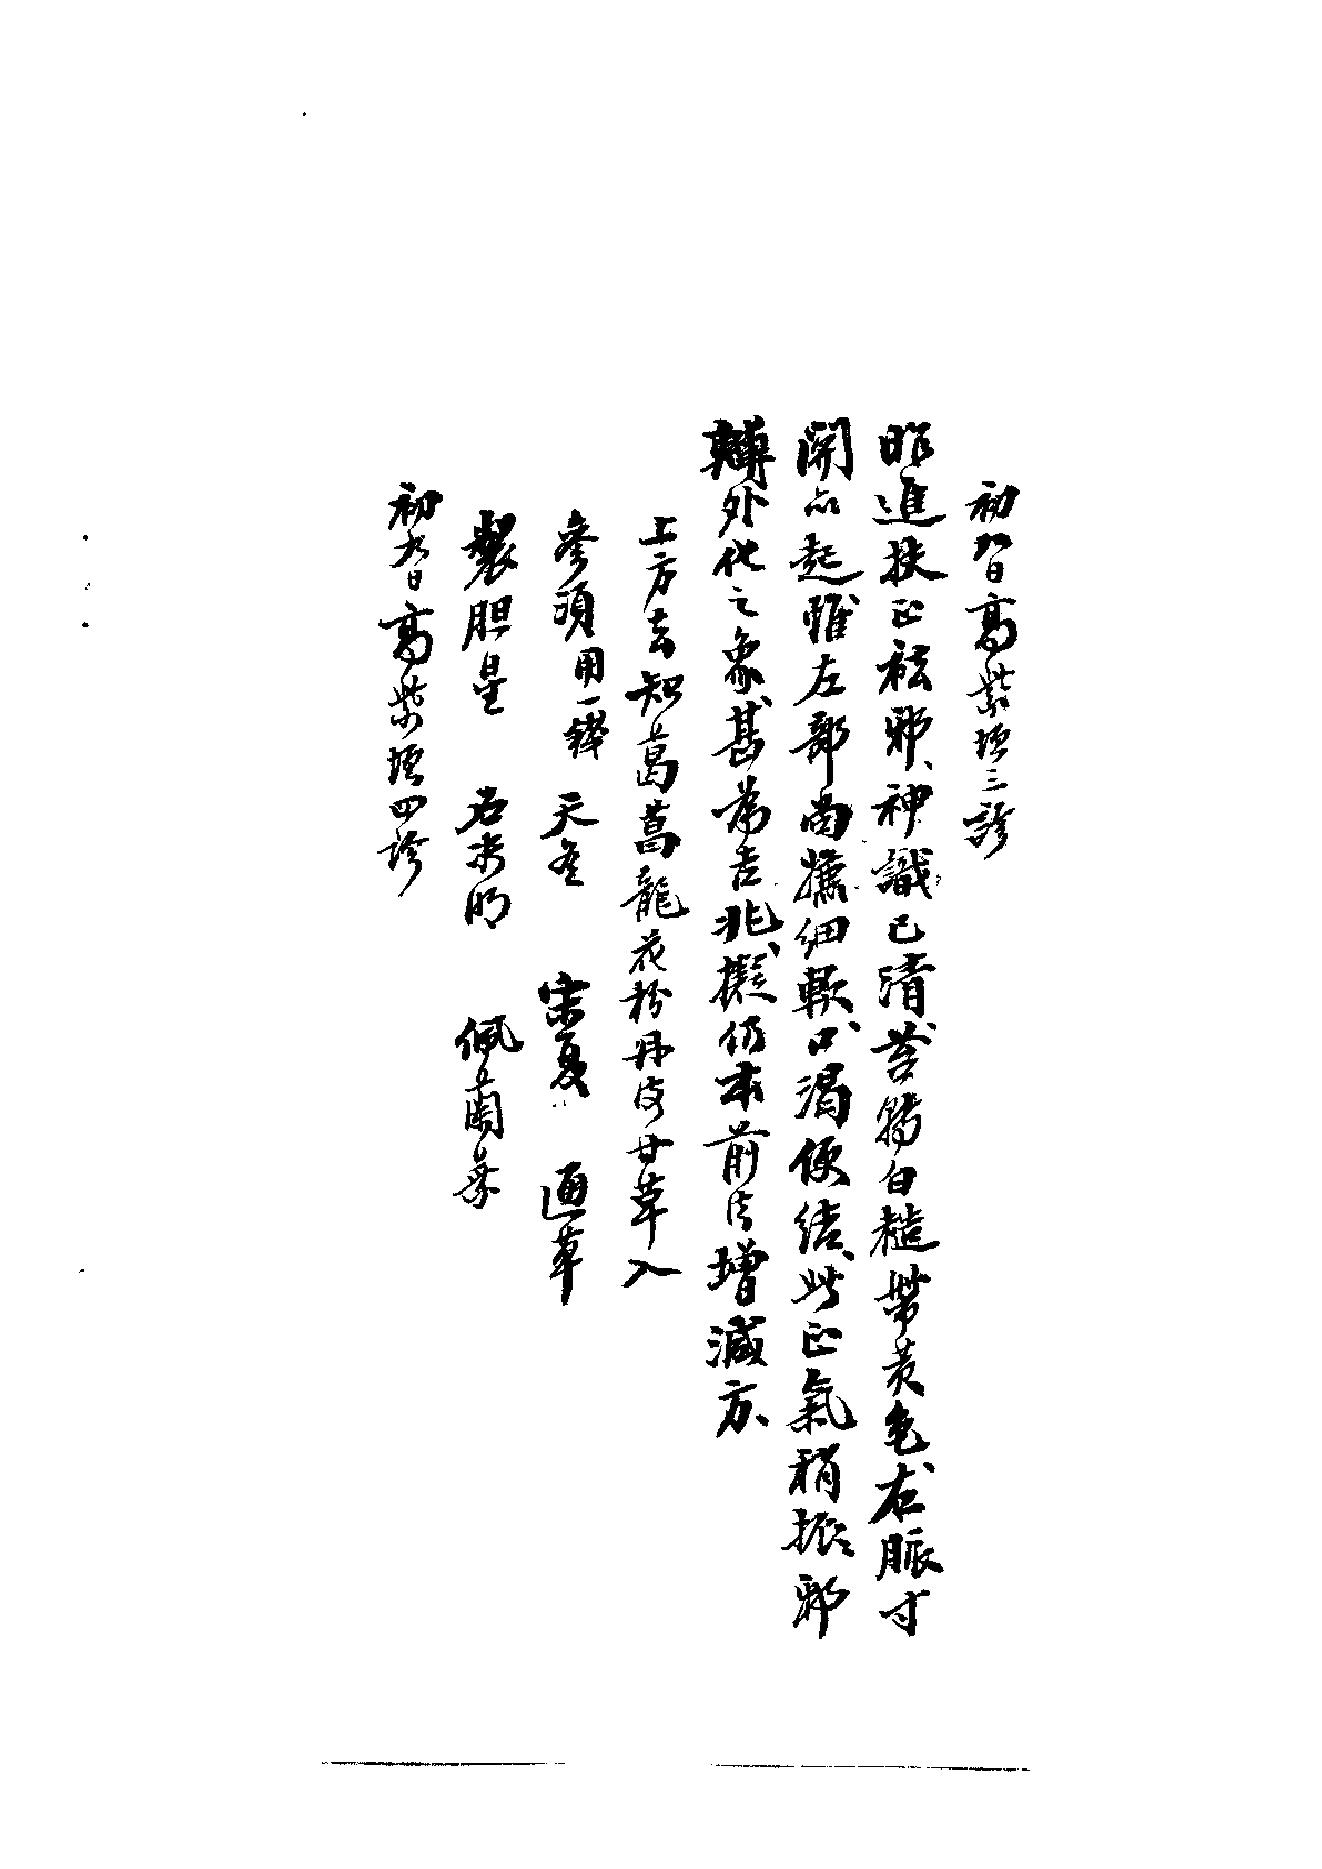 初八日高紫垣三診
昨進扶正祛邪、神識已清、苔舖白糙帶黃色、右脈寸
關亦起、惟左部尚撫細軟、口渴便結、此正氣稍振、邪
轉外化之象、甚為吉兆、擬仍本前法增減方、
上方去知葛菖龍花粉丹皮甘草入
參須用一錢 天冬 宋夏 通草
製胆星 石決明 佩蘭葉
初九日高紫垣四診